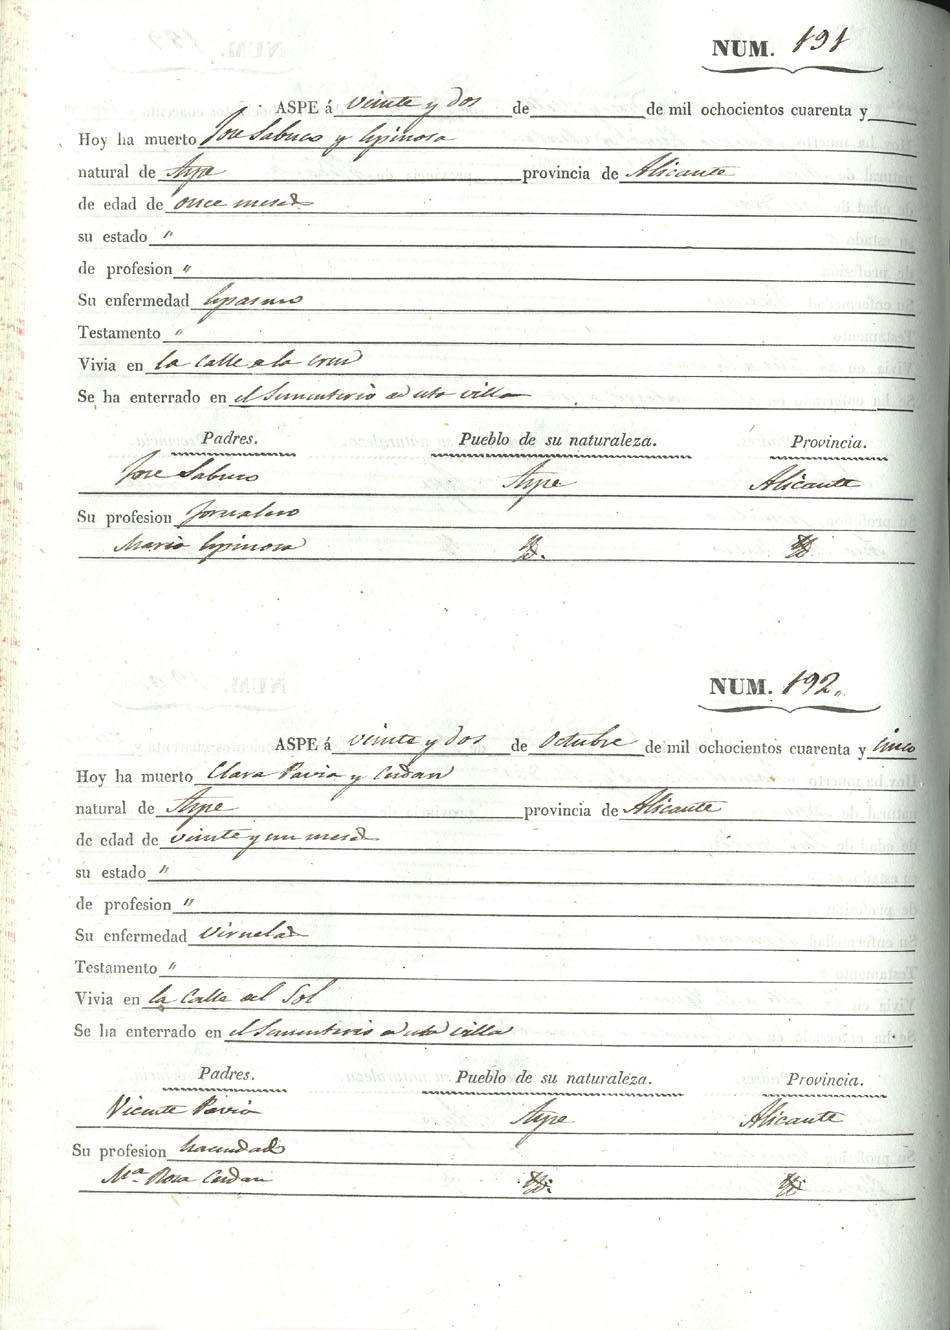 NUM. 191
ASPE á veinte y dos de de mil ochocientos cuarenta y
Hoy ha muerto Jose Sabuco y Espinosa
natural de Aspe provincia de Alicante
de edad de once mesed
su estado "
de profesion "
Su enfermedad Espasmo
Testamento "
Vivia en la Calle a la Cruz
Se ha enterrado en el Sementerio ad esta villa
Padres. Pueblo de su naturaleza. Provincia.
Jose Sabuco Aspe Alicante
Su profesion Jornalero
Maria Espinosa Yd. Yd.
NUM. 192.
ASPE á veinte y dos de Octubre de mil ochocientos cuarenta y cinco
Hoy ha muerto Clara Pavia y Cerdan
natural de Aspe provincia de Alicante
de edad de veinte y un mesed
su estado "
de profesion "
Su enfermedad Viruelad
Testamento "
Vivia en la Calle del Sol
Se ha enterrado en el Sementerio ad esta villa
Padres. Pueblo de su naturaleza. Provincia.
Vicente Pavia Aspe Alicante
Su profesion hacendado
Mª Rosa Cerdan Yd. Yd.